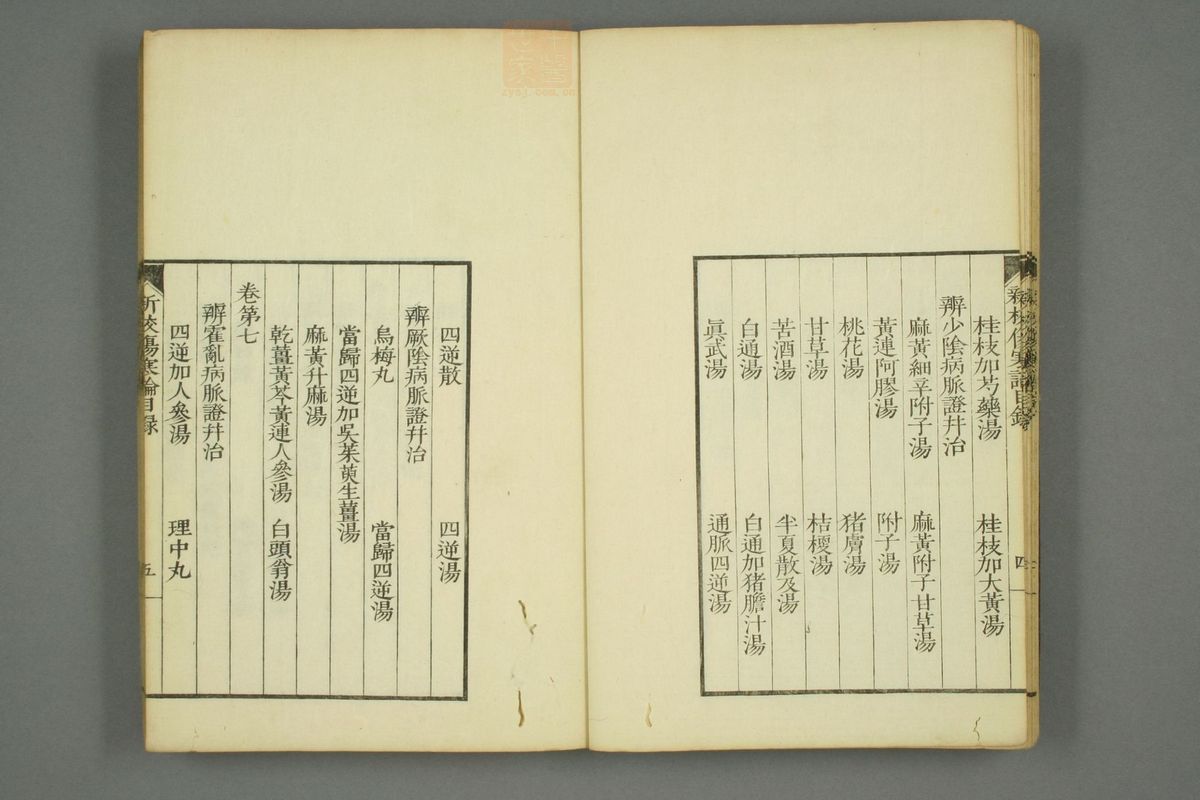 新校傷寒論目錄
四
桂枝加芍藥湯 桂枝加大黃湯
辨少陰病脈證幷治
麻黃細辛附子湯 麻黃附子甘草湯
黃連阿膠湯 附子湯
桃花湯 猪膚湯
甘草湯 桔梗湯
苦酒湯 半夏散及湯
白通湯 白通加猪膽汁湯
眞武湯 通脈四逆湯
四逆散 四逆湯
辨厥陰病脈證幷治
烏梅丸 當歸四逆湯
當歸四逆加吳茱萸生薑湯
麻黃升麻湯
乾薑黃芩黃連人參湯 白頭翁湯
卷第七
辨霍亂病脈證幷治
四逆加人參湯 理中丸
新校傷寒論目録
五
zysj.com.cn